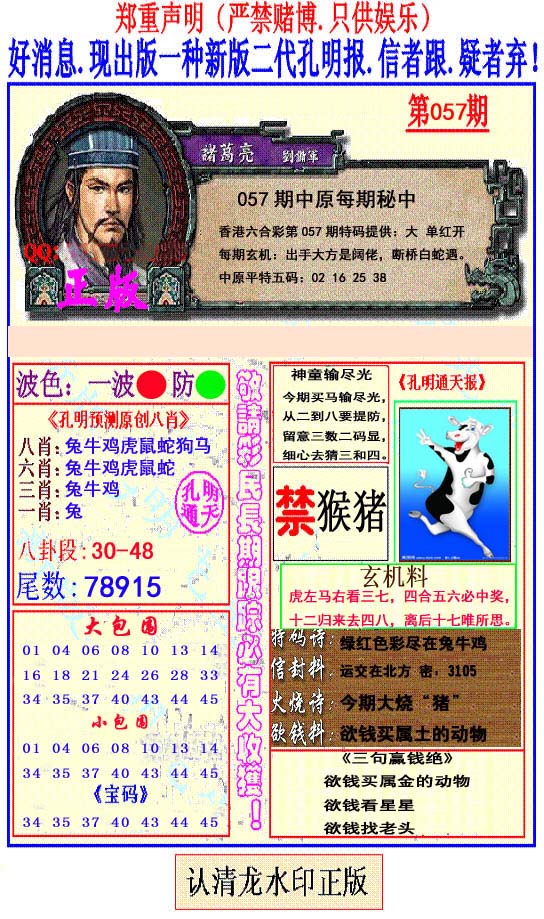 郑重声明（严禁赌博.只供娱乐）
好消息.现出版一种新版二代孔明报.信者跟.疑者弃!
第057期
諸葛亮 劉備軍
057 期中原每期秘中
香港六合彩第 057 期特码提供：大 单红开
每期玄机：出手大方是阔佬，断桥白蛇遇。
中原平特五码：02 16 25 38
QQ:
正版
波色：一波 防
《孔明预测原创八肖》
八肖:兔牛鸡虎鼠蛇狗马
六肖:兔牛鸡虎鼠蛇
三肖:兔牛鸡
一肖:兔
孔明
通天
八卦段:30-48
尾数:78915
大包围
01 04 06 08 10 13 14
16 18 21 24 26 28 33
34 35 37 40 43 44 45
小包围
01 04 06 08 10 13 14
34 35 37 40 43 44 45
《宝码》
34 35 37 40 43 44 45
敬請彩民長期跟踪必有大收獲！
神童输尽光
今期买马输尽光，
从二到八要提防，
留意三数二码显，
细心去猜三和四。
《孔明通天报》
禁猴猪
玄机料
虎左马右看三七，四合五六必中奖，
十二归来去四八，离后十七唯所思。
特码诗:绿红色彩尽在兔牛鸡
信封料.运交在北方 密：3105
火烧诗:今期大烧“猪”
欲钱料:欲钱买属土的动物
《三句赢钱绝》
欲钱买属金的动物
欲钱看星星
欲钱找老头
认清龙水印正版